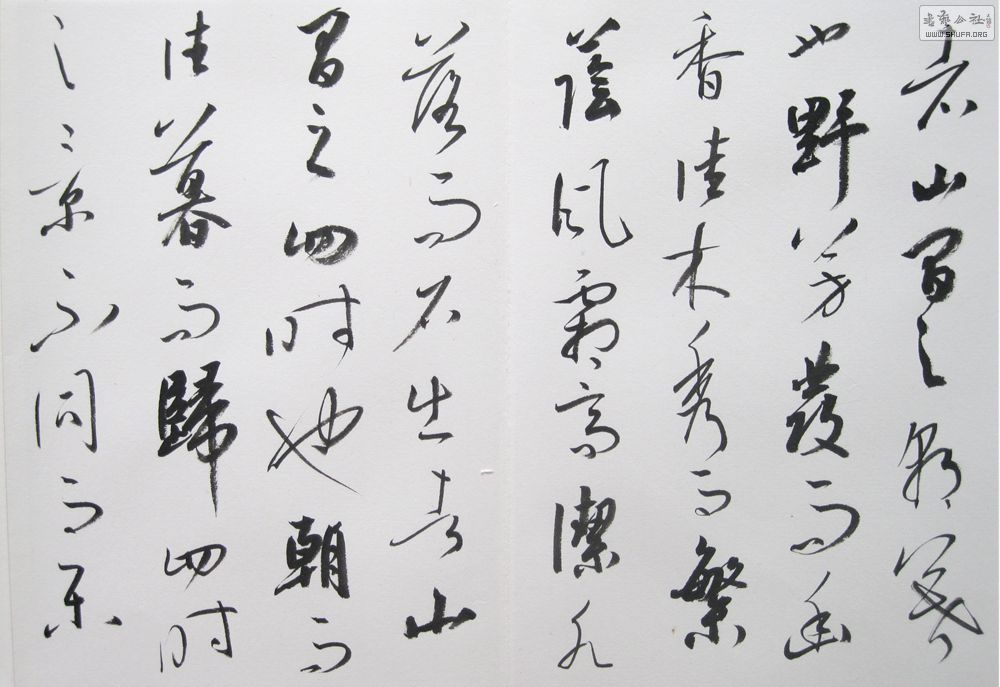 者山間之朝暮
也野芳發而幽
香佳木秀而繁
蔭風霜高潔水
落而石出者山
間之四時也朝而
往暮而歸四時
之景不同而樂
書藝公社
WWW.SHUFA.ORG